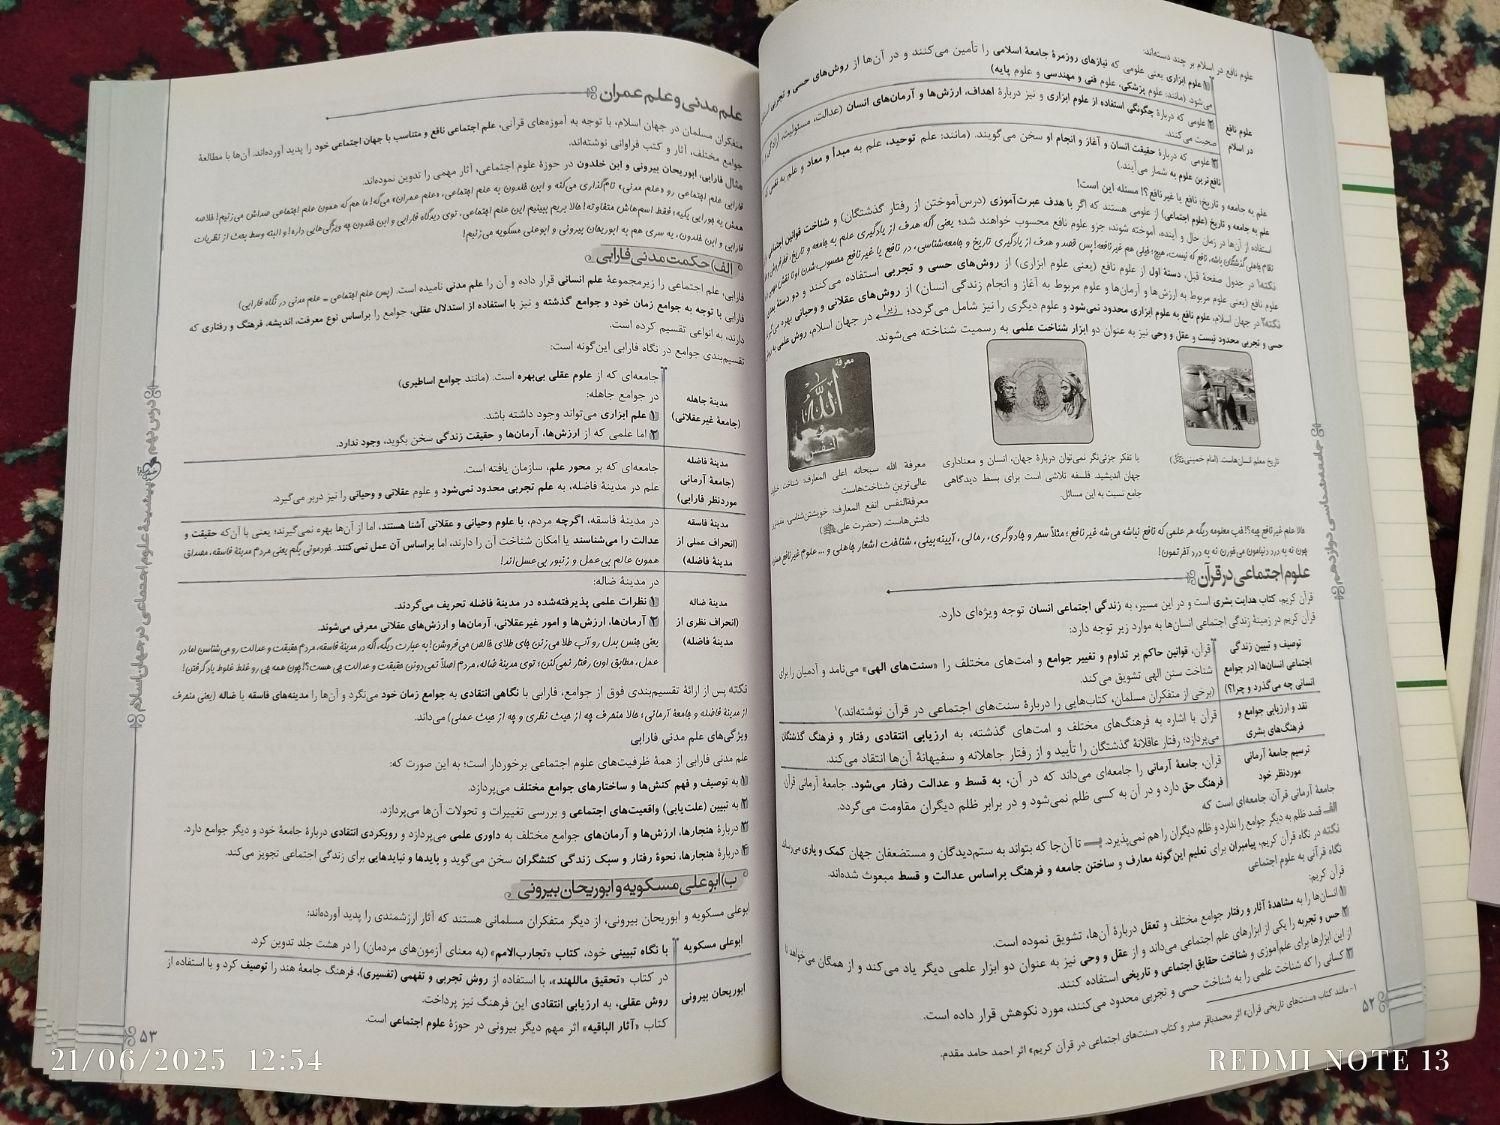 علوم نافع در اسلام بر چند دسته‌اند:
علوم نافع در اسلام
۱ علوم ابزاری یعنی علومی که نیازهای روزمرهٔ جامعهٔ اسلامی را تأمین می‌کنند و در آن‌ها از روش‌های حسی و تجربی
می‌شود. (مانند: علوم پزشکی، علوم فنی و مهندسی و علوم پایه)
۲ علومی که دربارهٔ چگونگی استفاده از علوم ابزاری و نیز دربارهٔ اهداف، ارزش‌ها و آرمان‌های انسان (عدالت، مسئولیت،
صحبت می‌کنند.
۳ علومی که دربارهٔ حقیقت انسان و آغاز و انجام او سخن می‌گویند. (مانند: علم توحید، علم به مبدأ و معاد و علم به
نافع‌ترین علوم به شمار می‌آیند.)
علم به جامعه و تاریخ؛ نافع یا غیرنافع؟! مسئله این است!
علم به جامعه و تاریخ (علوم اجتماعی) از علومی هستند که اگر با هدف عبرت‌آموزی (درس‌آموختن از رفتار گذشتگان) و شناخت قوانین اجتماعی
استفاده از آن‌ها در زمان حال و آینده، آموخته شوند، جزو علوم نافع محسوب خواهند شد؛ یعنی اگه هدف از یادگیری علم به جامعه و تاریخ،
نکته۱ در جدول صفحهٔ قبل، دستهٔ اول از علوم نافع (یعنی علوم ابزاری) از روش‌های حسی و تجربی استفاده می‌کنند و دو دستهٔ
علوم نافع (یعنی علوم مربوط به ارزش‌ها و آرمان‌ها و علوم مربوط به آغاز و انجام زندگی انسان) از روش‌های عقلانی و وحیانی بهره
نکته۲ در جهان اسلام، علوم نافع به علوم ابزاری محدود نمی‌شود و علوم دیگری را نیز شامل می‌گردد؛ زیرا در جهان اسلام، روش علمی به
حسی و تجربی محدود نیست و عقل و وحی نیز به عنوان دو ابزار شناخت علمی به رسمیت شناخته می‌شوند.
تاریخ معلم انسان‌هاست. (امام خمینی)
با تفکر جزئی‌نگر نمی‌توان دربارهٔ جهان، انسان و معناداری
جهان اندیشید. فلسفه تلاشی است برای بسط دیدگاهی
جامع نسبت به این مسائل.
معرفة
الله
النفس
معرفة الله سبحانه اعلی المعارف: شناخت
عالی‌ترین شناخت‌هاست
معرفةالنفس انفع المعارف: خویشتن‌شناسی،
دانش‌هاست. (حضرت علی)
حالا علم غیرنافع چیه؟! خب معلومه دیگه هر علمی که نافع نباشه می‌شه غیرنافع؛ مثلاً سحر و جادوگری، رمالی، آیینه‌بینی، شناخت اشعار جاهلی و ...
چون نه به درد دنیامون می‌خورن نه به درد آخرتمون!
علوم اجتماعی در قرآن
قرآن کریم، کتاب هدایت بشری است و در این مسیر، به زندگی اجتماعی انسان توجه ویژه‌ای دارد.
قرآن کریم در زمینهٔ زندگی اجتماعی انسان‌ها به موارد زیر توجه دارد:
توصیف و تبیین زندگی
اجتماعی انسان‌ها (در جوامع
انسانی چه می‌گذرد و چرا؟)
قرآن، قوانین حاکم بر تداوم و تغییر جوامع و امت‌های مختلف را «سنت‌های الهی» می‌نامد و آدمیان را برای
شناخت سنن الهی تشویق می‌کند.
(برخی از متفکران مسلمان، کتاب‌هایی را دربارهٔ سنت‌های اجتماعی در قرآن نوشته‌اند.)۱
نقد و ارزیابی جوامع و
فرهنگ‌های بشری
قرآن با اشاره به فرهنگ‌های مختلف و امت‌های گذشته، به ارزیابی انتقادی رفتار و فرهنگ گذشتگان
می‌پردازد؛ رفتار عاقلانهٔ گذشتگان را تأیید و از رفتار جاهلانه و سفیهانهٔ آن‌ها انتقاد می‌کند.
ترسیم جامعهٔ آرمانی
موردنظر خود
قرآن، جامعهٔ آرمانی را جامعه‌ای می‌داند که در آن، به قسط و عدالت رفتار می‌شود. جامعهٔ آرمانی قرآن
فرهنگ حق دارد و در آن به کسی ظلم نمی‌شود و در برابر ظلم دیگران مقاومت می‌گردد.
جامعهٔ آرمانی قرآن، جامعه‌ای است که
الف قصد ظلم به دیگر جوامع را ندارد و ظلم دیگران را هم نمی‌پذیرد. ب تا آن‌جا که بتواند به ستم‌دیدگان و مستضعفان جهان کمک و یاری می‌رساند
نکته در نگاه قرآن کریم، پیامبران برای تعلیم این‌گونه معارف و ساختن جامعه و فرهنگ براساس عدالت و قسط مبعوث شده‌اند.
نگاه قرآنی به علوم اجتماعی
قرآن کریم:
۱ انسان‌ها را به مشاهدهٔ آثار و رفتار جوامع مختلف و تعقل دربارهٔ آن‌ها، تشویق نموده است.
۲ حس و تجربه را یکی از ابزارهای علم اجتماعی می‌داند و از عقل و وحی نیز به عنوان دو ابزار علمی دیگر یاد می‌کند و از همگان می‌خواهد تا
از این ابزارها برای علم‌آموزی و شناخت حقایق اجتماعی و تاریخی استفاده کنند.
۳ کسانی را که شناخت علمی را به شناخت حسی و تجربی محدود می‌کنند، مورد نکوهش قرار داده است.
۱- مانند کتاب «سنت‌های تاریخی قرآن» اثر محمدباقر صدر و کتاب «سنت‌های اجتماعی در قرآن کریم» اثر احمد حامد مقدم.
جامعه‌شناسی دوازدهم
۵۲
علم مدنی و علم عمران
متفکران مسلمان در جهان اسلام، با توجه به آموزه‌های قرآنی، علم اجتماعی نافع و متناسب با جهان اجتماعی خود را پدید آورده‌اند. آن‌ها با مطالعهٔ
جوامع مختلف، آثار و کتب فراوانی نوشته‌اند.
مثال فارابی، ابوریحان بیرونی و ابن خلدون در حوزهٔ علوم اجتماعی، آثار مهمی را تدوین نموده‌اند.
فارابی علم اجتماعی رو «علم مدنی» نام‌گذاری می‌کنه و ابن خلدون به علم اجتماعی، «علم عمران» می‌گه! ما هم که همون علم اجتماعی صداش می‌زنیم! خلاصه
همش یه جورایی یکیه؛ فقط اسم‌هاش متفاوته! حالا بریم ببینیم این علم اجتماعی، توی دیدگاه فارابی و ابن خلدون چه ویژگی‌هایی داره! و البته وسط بحث از نظریات
فارابی و ابن خلدون، یه سری هم به ابوریحان بیرونی و ابوعلی مسکویه می‌زنیم!
الف) حکمت مدنی فارابی
فارابی، علم اجتماعی را زیرمجموعهٔ علم انسانی قرار داده و آن را علم مدنی نامیده است. (پس علم اجتماعی = علم مدنی در نگاه فارابی)
فارابی با توجه به جوامع زمان خود و جوامع گذشته و نیز با استفاده از استدلال عقلی، جوامع را براساس نوع معرفت، اندیشه، فرهنگ و رفتاری که
دارند، به انواعی تقسیم کرده است.
تقسیم‌بندی جوامع در نگاه فارابی این‌گونه است:
مدینهٔ جاهله
(جامعهٔ غیرعقلانی)
جامعه‌ای که از علوم عقلی بی‌بهره است. (مانند جوامع اساطیری)
در جوامع جاهله:
۱ علم ابزاری می‌تواند وجود داشته باشد.
۲ اما علمی که از ارزش‌ها، آرمان‌ها و حقیقت زندگی سخن بگوید، وجود ندارد.
مدینهٔ فاضله
(جامعهٔ آرمانی
موردنظر فارابی)
جامعه‌ای که بر محور علم، سازمان یافته است.
علم در مدینهٔ فاضله، به علم تجربی محدود نمی‌شود و علوم عقلانی و وحیانی را نیز دربر می‌گیرد.
مدینهٔ فاسقه
(انحراف عملی از
مدینهٔ فاضله)
در مدینهٔ فاسقه، اگرچه مردم، با علوم وحیانی و عقلانی آشنا هستند، اما از آن‌ها بهره نمی‌گیرند؛ یعنی با آن‌که حقیقت و
عدالت را می‌شناسند یا امکان شناخت آن را دارند، اما براساس آن عمل نمی‌کنند. خودمونی بگم یعنی مردم مدینهٔ فاسقه، مصداق
همون عالم بی‌عمل و زنبور بی‌عسل‌اند!
مدینهٔ ضاله
(انحراف نظری از
مدینهٔ فاضله)
در مدینهٔ ضاله:
۱ نظرات علمی پذیرفته‌شده در مدینهٔ فاضله تحریف می‌گردند.
۲ آرمان‌ها، ارزش‌ها و امور غیرعقلانی، آرمان‌ها و ارزش‌های عقلانی معرفی می‌شوند.
یعنی جنس بدل رو آب طلا می‌زنن جای طلای خالص می‌فروشن! به عبارت دیگه، اگه در مدینهٔ فاسقه، مردم حقیقت و عدالت رو می‌شناسن اما در
عمل، مطابق اون رفتار نمی‌کنن؛ توی مدینهٔ ضاله، مردم اصلاً نمی‌دونن حقیقت و عدالت چی هست؟! چون همه چی رو غلط غلوط یاد گرفتن!
نکته پس از ارائهٔ تقسیم‌بندی فوق از جوامع، فارابی با نگاهی انتقادی به جوامع زمان خود می‌نگرد و آن‌ها را مدینه‌های فاسقه یا ضاله (یعنی منحرف
از مدینهٔ فاضله و جامعهٔ آرمانی؛ حالا منحرف چه از حیث نظری و چه از حیث عملی) می‌داند.
ویژگی‌های علم مدنی فارابی
علم مدنی فارابی از همهٔ ظرفیت‌های علوم اجتماعی برخوردار است؛ به این صورت که:
۱ به توصیف و فهم کنش‌ها و ساختارهای جوامع مختلف می‌پردازد.
۲ به تبیین (علت‌یابی) واقعیت‌های اجتماعی و بررسی تغییرات و تحولات آن‌ها می‌پردازد.
۳ دربارهٔ هنجارها، ارزش‌ها و آرمان‌های جوامع مختلف به داوری علمی می‌پردازد و رویکردی انتقادی دربارهٔ جامعهٔ خود و دیگر جوامع دارد.
۴ دربارهٔ هنجارها، نحوهٔ رفتار و سبک زندگی کنشگران سخن می‌گوید و بایدها و نبایدهایی برای زندگی اجتماعی تجویز می‌کند.
ب) ابوعلی مسکویه و ابوریحان بیرونی
ابوعلی مسکویه و ابوریحان بیرونی، از دیگر متفکران مسلمانی هستند که آثار ارزشمندی را پدید آورده‌اند:
ابوعلی مسکویه
با نگاه تبیینی خود، کتاب «تجارب‌الامم» (به معنای آزمون‌های مردمان) را در هشت جلد تدوین کرد.
ابوریحان بیرونی
در کتاب «تحقیق ماللهند»، با استفاده از روش تجربی و تفهمی (تفسیری)، فرهنگ جامعهٔ هند را توصیف کرد و با استفاده از
روش عقلی، به ارزیابی انتقادی این فرهنگ نیز پرداخت.
کتاب «آثار الباقیه» اثر مهم دیگر بیرونی در حوزهٔ علوم اجتماعی است.
درس نهم
پیشینهٔ علوم اجتماعی در جهان اسلام
۵۳
21/06/2025 12:54
REDMI NOTE 13